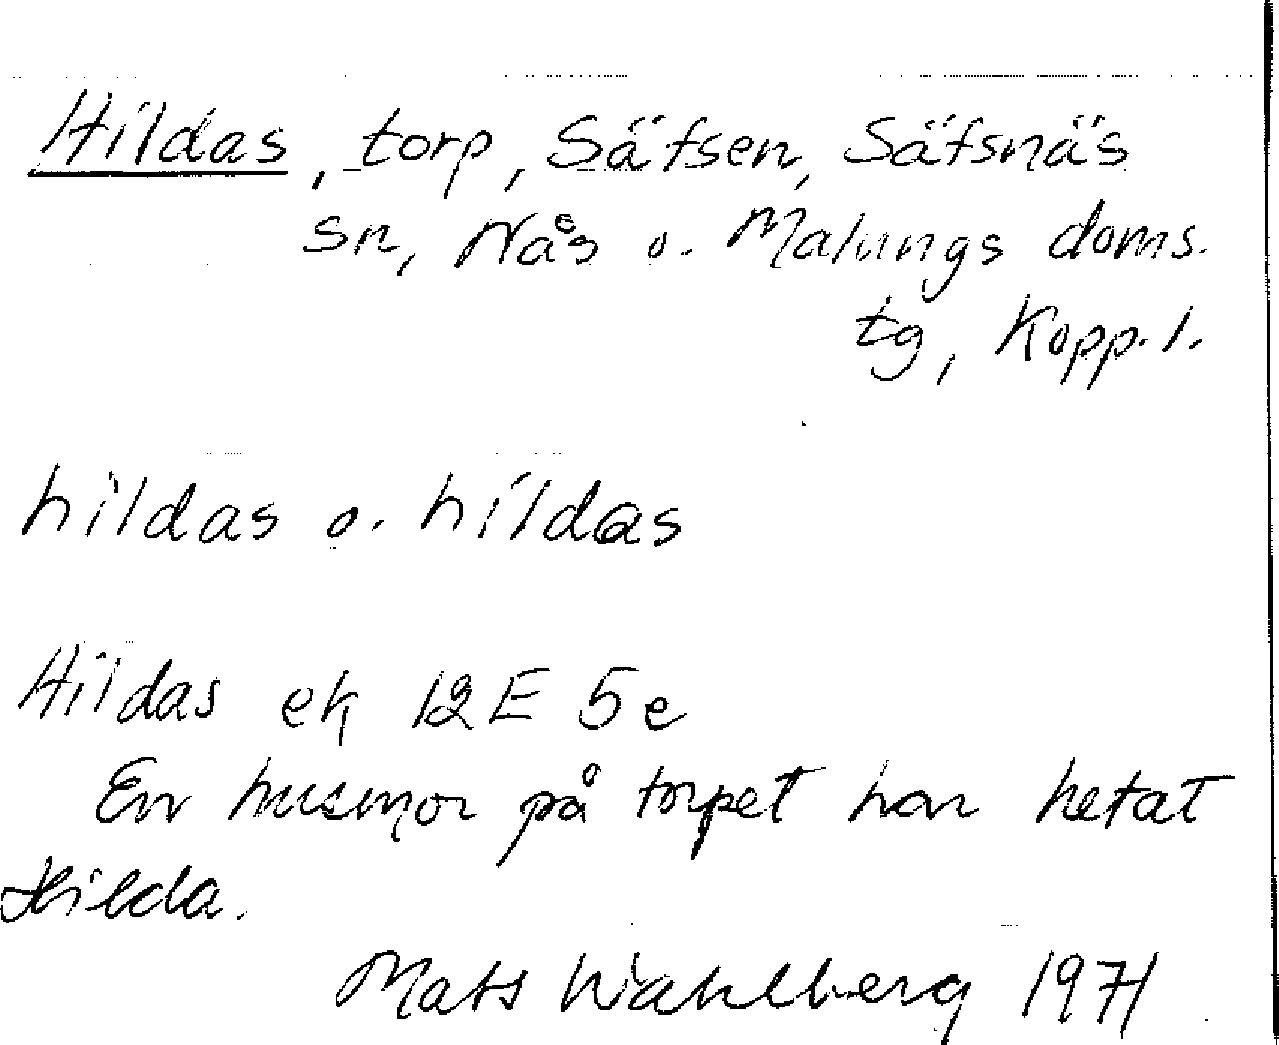 Hildas, torp, Säfsen, Säfsnäs
sn, Nås o. Malungs doms.
tg, Kopp. l.
hildas o. híldas
Hildas ek 12E 5e
En husmor på torpet har hetat
Hilda.
Mats Wahlberg 1971